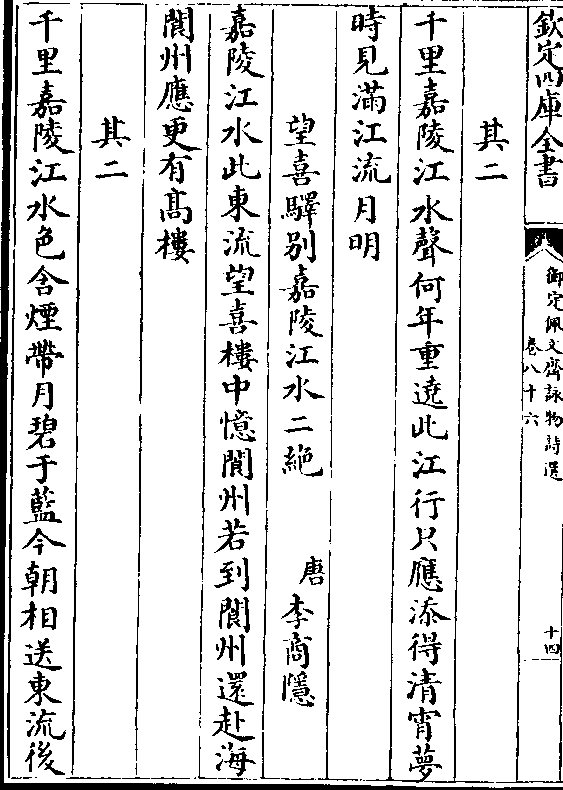 欽定四庫全書
御定佩文齋詠物詩選
卷八十六
十四
其二
千里嘉陵江水聲何年重遶此江行只應添得清宵夢
時見滿江流月明
望喜驛別嘉陵江水二絶
唐
李商隱
嘉陵江水此東流望喜樓中憶閬州若到閬州還赴海
閬州應更有髙樓
其二
千里嘉陵江水色含煙帶月碧于藍今朝相送東流後